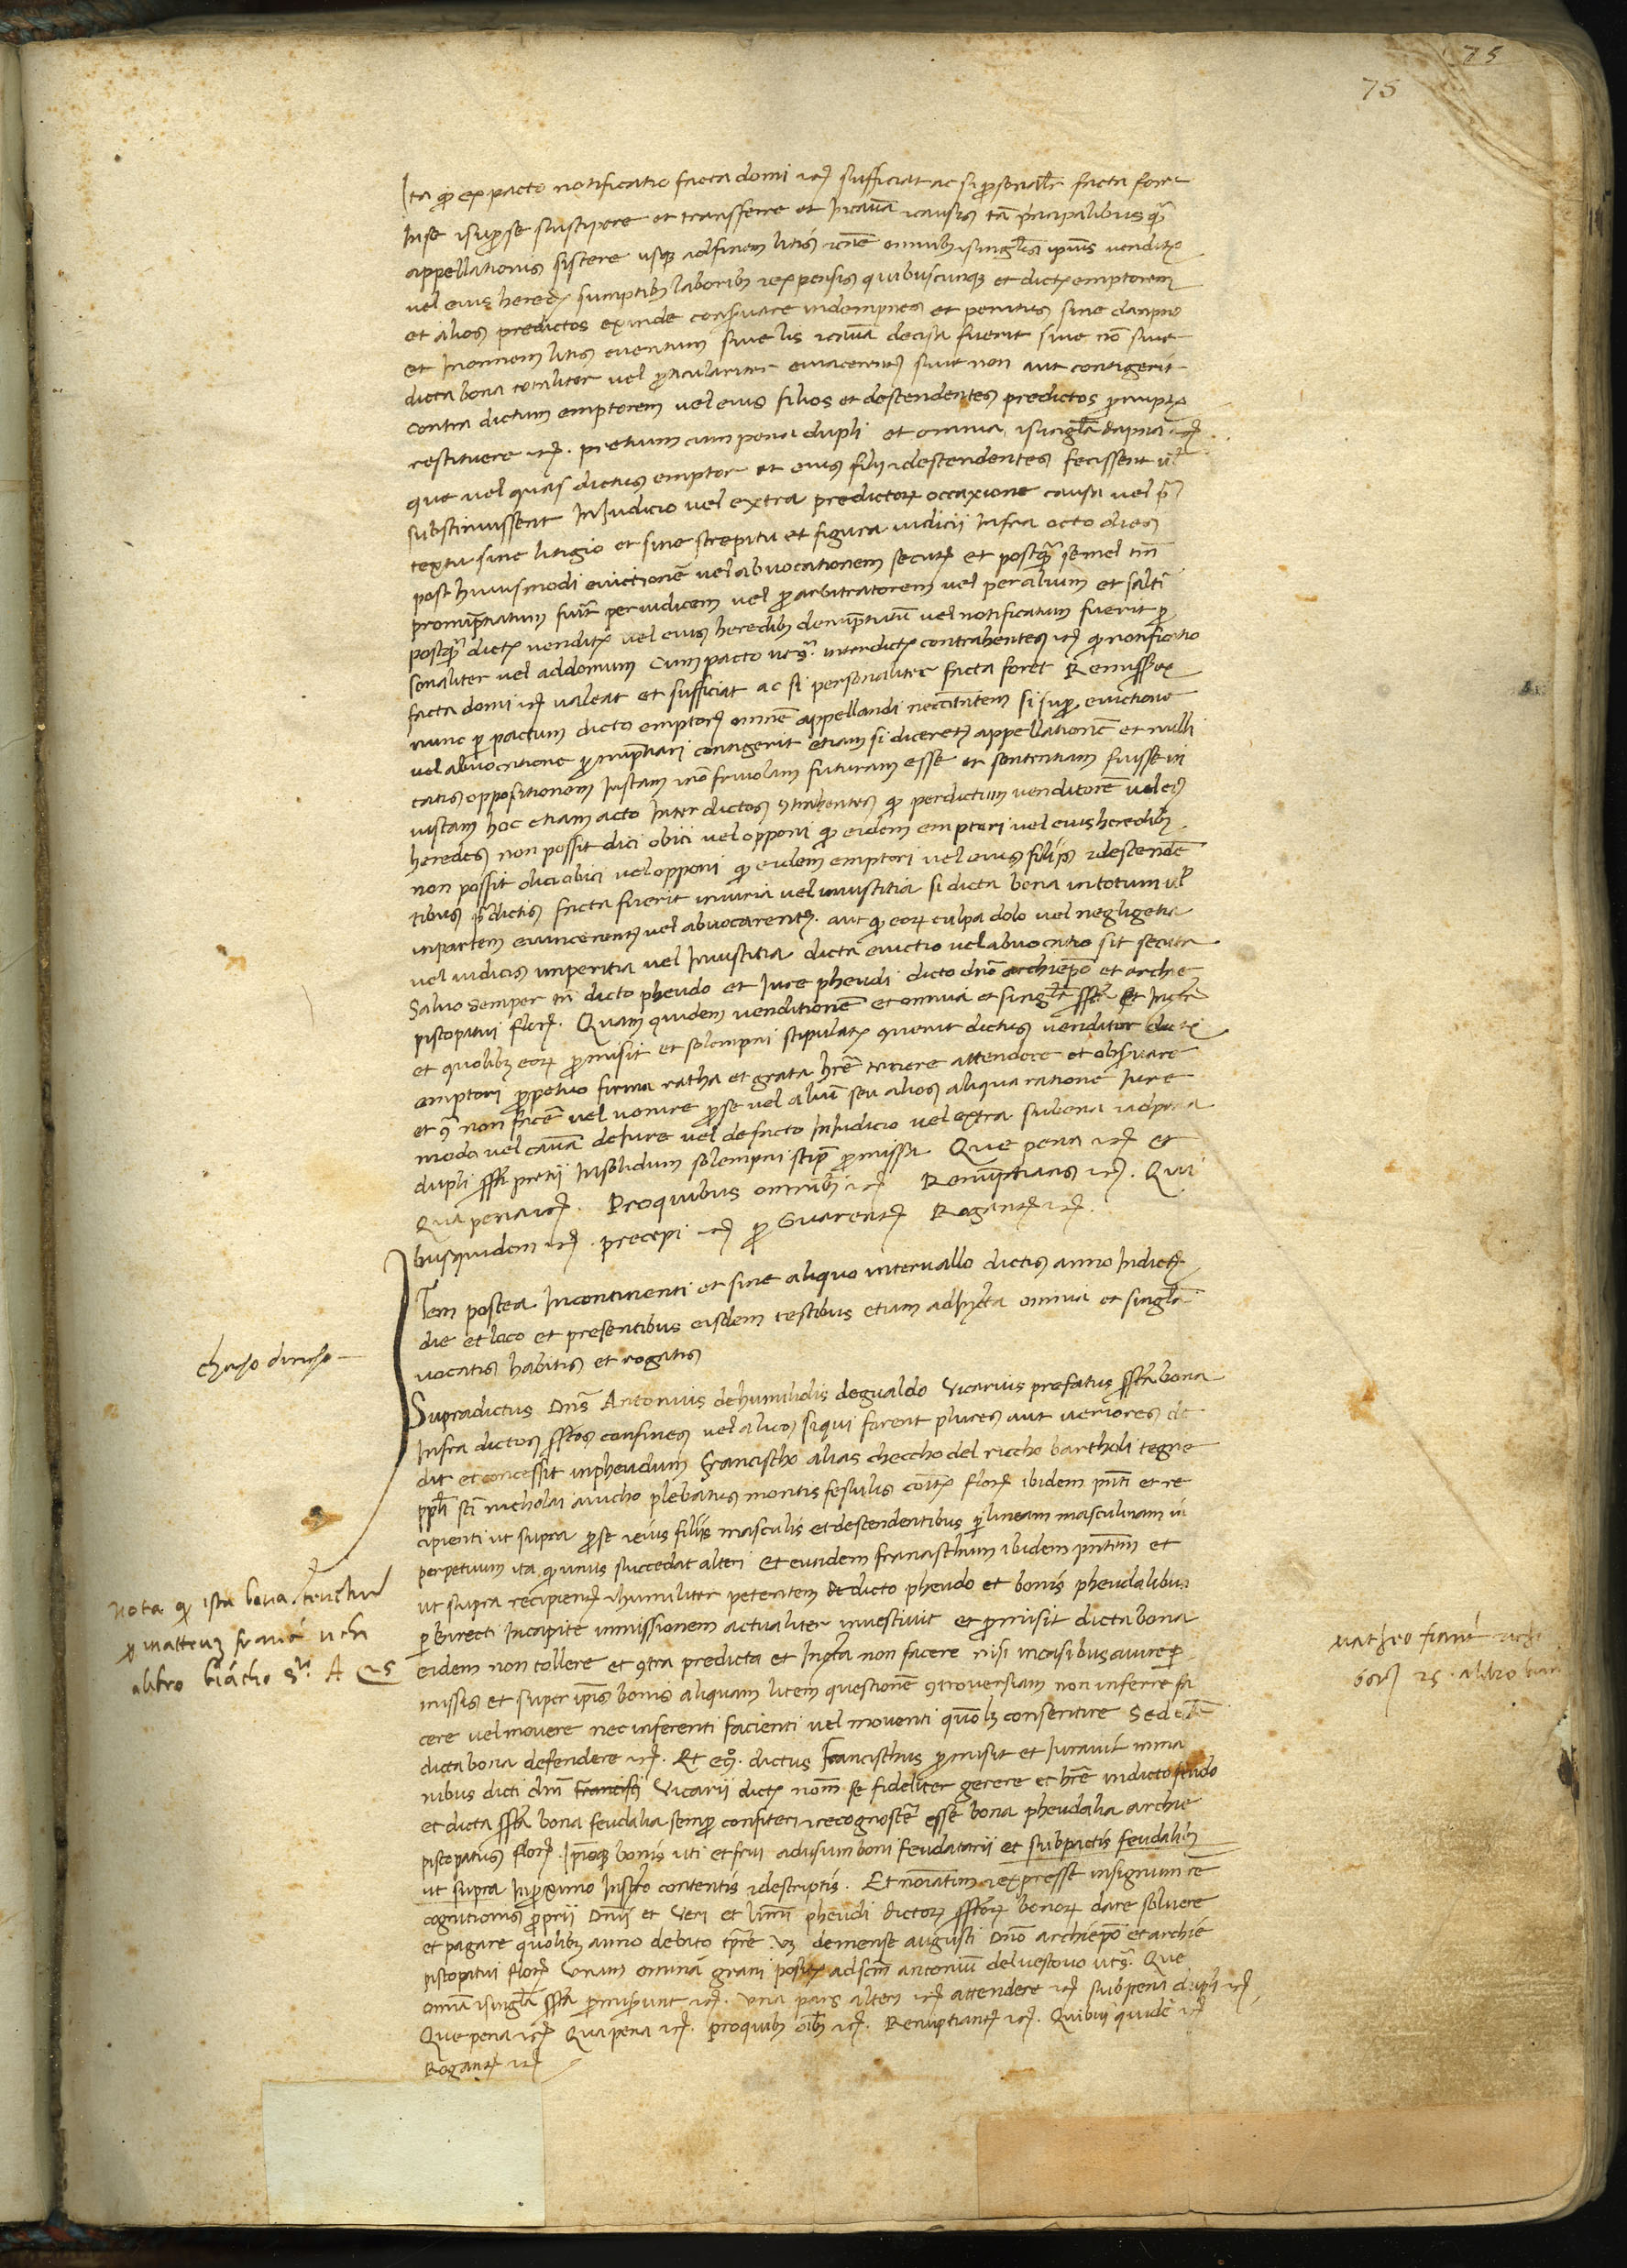 75
75
Ita qđ ex pacto notificatio facta domi etc̃ sufficiat ac si ꝑsonalr̃ facta foret
In se ⁊ suꝑ se suscipere et transferre et In cauã ⁊ causis tã prĩcipalibus q̃
appellationis sistere usq̃ ad finem litis ⁊ cuɜ omnibɜ ⁊ singulis ipius venditoꝝ
vel eius heredũ sumptibɜ laboribɜ ⁊ expensis quibuscunqɜ et dictũ emptorem
et alios predictos exinde conßvare indempnes et penitus sine dampno
et In omnem litis eventum sive lis ⁊ cauã decisa fuerit sive nõ sive
dicta bona totaliter vel ꝑticulariter evincerent̃ sive non aut contigerit
contra dictum emptorem vel eius filios et descendentes predictos ꝓnumptiari
restituere etc̃. pretium cum pena dupli et omnia ⁊ singl̃a dapna etc̃
que vel quas dictus emptor et eius filij ⁊ descendentes fecissent vl̃
substinuissent In Judicio vel extra predictorꝫ occaxione causa vel p̃
textu sine litigio et sine strepitu et figura iudicii Infra octo dies
post huiusmodi evictionẽ vel abvocationem secutã et postq̃ semel tm̃
pronũptiatum fuit̃ per iudicem vel ꝓ arbitratorem vel per alium et saltĩ
postq̃ dicto venditori vel eius heredibɜ denũptiatũ vel notificatum fuerit ꝑ
sonaliter vel ad domum Cum pacto ut sͣ. inter dictos contrahentes etc̃ qđ notificatio
facta domi etc̃ valeat et sufficiat ac si personaliter facta foret Remisserunt
nunc ꝑ pactum dicto emptori omnẽ appellandi necc̃itatem si suꝑ evictione
vel abvocatione ꝓnũptiari contigerit etiam si diceret̃ appellationẽ et nulli
tatis oppositionem Justam ⁊ nõ frivolam futuram esse et sententiam fuisse in
iustam hoc etiam acto Inter dictos ꝯtrahentes qđ per dictum venditorẽ vel eiꝰ
heredes non possit dici obici vel opponi qđ eidem emptori vel eius heredibɜ
non possit dici obici vel opponi qđ eidem emptori vel eius filijs ⁊ descenden̄
tibus p̃dictis facta fuerit iniuria vel iniustitia si dicta bona in totum vl̃
in partem evincerent̃ vel abvocarent̃. aut qđ eorꝫ culpa dolo vel negligẽtia
vel iudicis imperitia vel Iniustitia dicta evictio vel abvocatio sit secuta
Salvo semper tñ dicto pheudo et Jure pheudi dicto dño archiepõ et archie
piscopatui florẽ. Quam quidem venditionẽ et omnia et singl̃a ss̃ta et Infrã
et quolibɜ eorꝫ ꝓmisit et solempni stipulatẽ ꝯvenit dictus venditor dicto
emptori ꝑpetuo firma ratha et grata hr̃e tenere attendere et obßvare
et ꝯͣ non facẽ vel venire ꝑ se vel aliũ seu alios aliqua ratione Jure
modo vel cauã de Jure vel de facto In Judicio vel extra sub pena ⁊ ad pena
dupli ss̃ti pretii In solidum solempni stip̃ ꝓmissa Que pena etc̃ et
Qua pena etc̃. Pro quibus omnibɜ etc̃ Renũptians etc̃. Qui
bus quidem etc̃. precepi etc̃ ꝑ Guarentẽ Rogantes etc̃.
Item postea Incontinenti et sine aliquo intervallo dictis anno Indictẽ
die et loco et presentibus eisdem testibus etiam ad Infrãcta omnia et singl̃a
vocatis habitis et rogatis
Supradictus Dñs Antonius de humilidis de gualdo Vicarius prefatus ss̃ta bona
Infra dictos ss̃tos confines vel alios siqui forent plures aut veriores de
dit et concessit in pheudum Francischo alias checcho del riccho bartholi tegne
ppl̃i sc̃i nicholai avicho plebatus montis fesulis coit̃ florẽ ibidem pñti et re
cipienti ut supra ꝑ se ⁊ eius filiis masculis et descendentibus ꝑ lineam masculinam in
perpetuum ita qđ unus succedat alteri Et eundem francischum ibidem pñtem et
ut supra recipientẽ ⁊ humiliter petentem de dicto pheudo et bonis pheudalibus
ꝑ birecti In capite immissionem actualiter investivit et ꝓmisit dicta bona
eidem non tollere et ꝯtra predicta et Infrãcta non facere nisi in casibus a iure ꝑ
missis et super ip̃is bonis aliquam litem questionẽ ꝯtroversiam non inferre fa
cere vel movere nec inferenti facienti vel moventi quoɜ consentire Sed etiã
dicta bona defendere etc̃. Et eͦ. dictus Francischus ꝓmisit et Juravit in ma
nibus dicti dñi Francisci Vicarii dicto nõie se fideliter gerere et hr̃e in dicto feudo
et dicta ss̃ta bona feudalia semꝑ confiteri ⁊ recognoscẽ esse bona pheudalia archie
piscopatus florẽ. Ipisqɜ bonis uti et frui ad usum boni feudatarii et sub pactis feudalibɜ
ut supra In proximo Instr̃o contentis ⁊ descriptis. Et nomiatim ⁊ expresse in signum re
cognitionis proprii Dñij et Veri et Jurĩ pheudi dictorꝫ ss̃torꝫ bonorꝫ dare solvere
et pagare quolibɜ anno debito tp̃re vɜ de mense augusti Dño archiepõ et archie
piscopatui florẽ Unam ominã grani positã ad scm̃ antoniũ del vescovo ut sͣ. Que
omĩa ⁊ singl̃a ss̃ta ꝓmiserunt etc̃. una pars alteri etc̃ attendere etc̃ sub pena dupli etc̃
Que pena etc̃ Qua pena etc̃. pro quibɜ oĩbɜ etc̃. Renũptiantes etc̃. Quibus quidẽ etc̃
Rogantes etc̃
nota qđ ista bona
ꝑ matteuɜ franc̃
a libro biãcho A 25
25 a libro bian